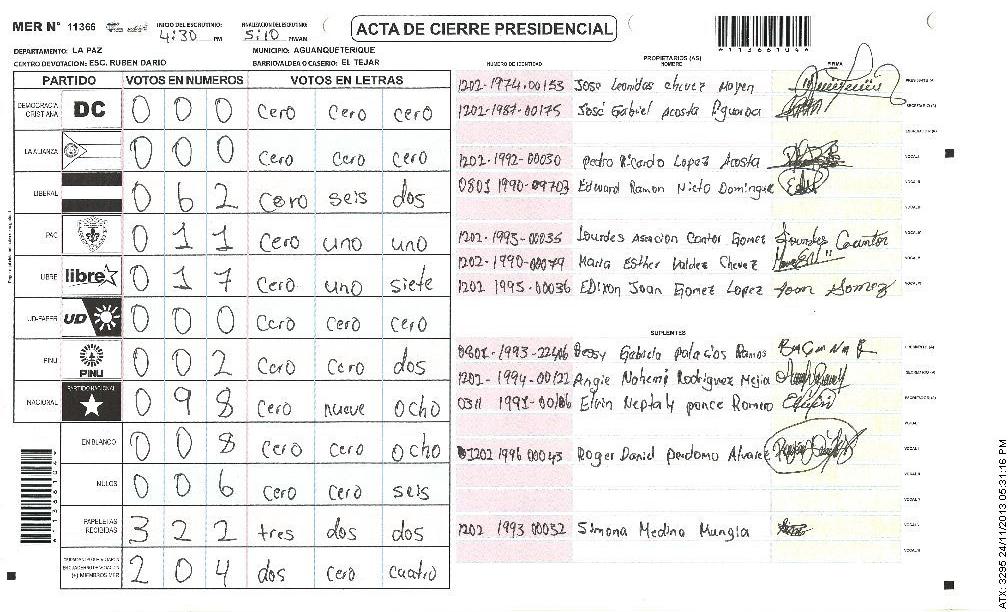 MER N° 11366 INICIO DEL ESCRUTINIO: 4:30 PM FINALIZACION DEL ESCRUTINIO: 5:10 PM/AM ACTA DE CIERRE PRESIDENCIAL 1136610
DEPARTAMENTO: LA PAZ MUNICIPIO: AGUANQUETERIQUE
CENTRO DE VOTACION: ESC. RUBEN DARIO BARRIO/ALDEA O CASERIO: EL TEJAR
PROPIETARIOS (AS)
NUMERO DE IDENTIDAD NOMBRE FIRMA
PARTIDO VOTOS EN NUMEROS VOTOS EN LETRAS
DEMOCRACIA CRISTIANA DC 0 0 0 cero cero cero
LA ALIANZA 0 0 0 cero cero cero
LIBERAL 0 6 2 cero seis dos
PAC 0 1 1 cero uno uno
LIBRE libre 0 1 7 cero uno siete
UD-FAPER UD 0 0 0 cero cero cero
PINU PINU 0 0 2 cero cero dos
NACIONAL PARTIDO NACIONAL 0 9 8 cero nueve ocho
EN BLANCO 0 0 8 cero cero ocho
NULOS 0 0 6 cero cero seis
PAPELETAS RECIBIDAS 3 2 2 tres dos dos
(+) MIEMBROS MER 2 0 4 dos cero cuatro
1202-1974-00153 Jose Leonidas chevez Moyen
1202-1987-00175 José Gabriel Acosta Figueroa
1202-1992-00030 pedro Ricardo Lopez Acosta
0801 1990-09703 Edward Ramon Nieto Domingue
1202-1993-00035 Lourdes Asencion Cantor Gomez Lourdes Cantor
1202-1990-00079 Maria Esther Valdez Chevez
1202 1995-00036 EDixon Joan Gomez Lopez Joan Gomez
SUPLENTES
0801-1993-22406 Bessy Gabriela palacios Ramos
1202-1994-00122 Angie Nohemi Rodriguez Mejia
0311 1991-00106 Elvin Neptaly ponce Romero
1202 1996 00043 Roger Daniel perdomo Alvarez
1202 1993 00032 Simona Medina Mungia
ATX: 3295 24/11/2013 05:31:16 PM